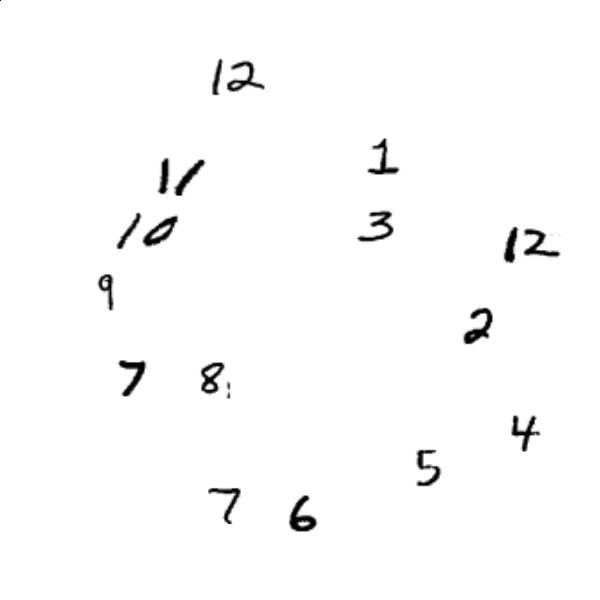 12
1
11
10
3
12
9
2
7 8
4
5
7 6